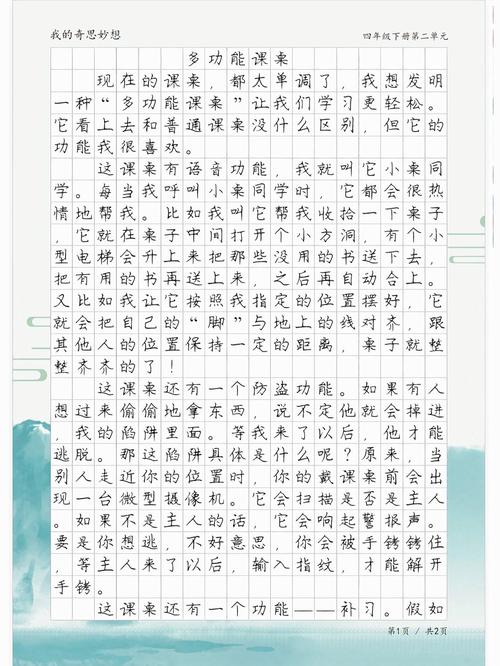 我的奇思妙想
四年级下册第二单元
多功能课桌
现在的课桌，都太单调了，我想发明
一种“多功能课桌”让我们学习更轻松。
它看上去和普通课桌没什么区别，但它的
功能我很喜欢。
这课桌有语音功能，我就叫它小桌同
学。每当我呼叫小桌同学时，它都会很热
情地帮我。比如我叫它帮我收拾一下桌子
，它就在桌子中间打开个小方洞，有个小
型电梯会升上来把那些没用的书送下去，
把有用的书再送上来，之后再自动合上。
又比如我让它按照我指定的位置摆好，它
就会把自己的“脚”与地上的线对齐，跟
其他人的位置保持一定的距离，桌子就整
整齐齐的了！
这课桌还有一个防盗功能。如果有人
想过来偷偷地拿东西，说不定他就会掉进
，我的陷阱里面。等我来了以后，他才能
逃脱。那这陷阱具体是什么呢？原来，当
别人走近你的位置时，你的戴课桌前会出
现一台微型摄像机。它会扫描是否是主人
。如果不是主人的话，它会响起警报声。
要是你想逃，不好意思，你会被手铐铐住
，等主人来了以后，输入指纹，才能解开
手铐。
这课桌还有一个功能——补习。假如
第1页 / 共2页